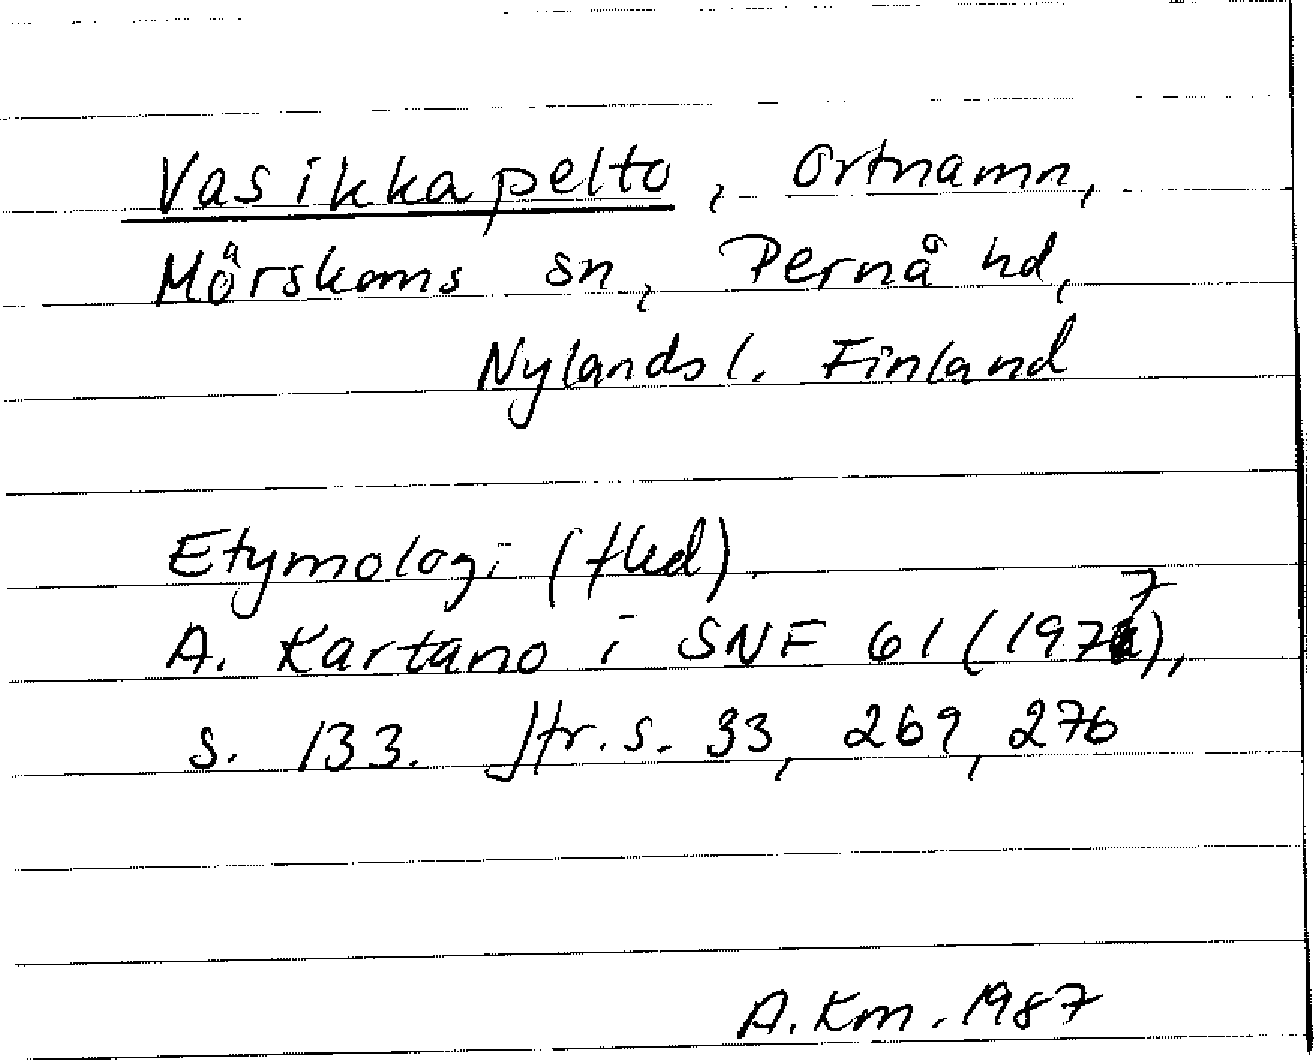 Vasikkapelto, Ortnamn,
Mörskoms sn, Pernå hd,
Nylands l. Finland
Etymologi (fled).
A. Kartano i SNF 61 (1977),
s. 133. Jfr. s. 33, 269, 276
A. Km. 1987